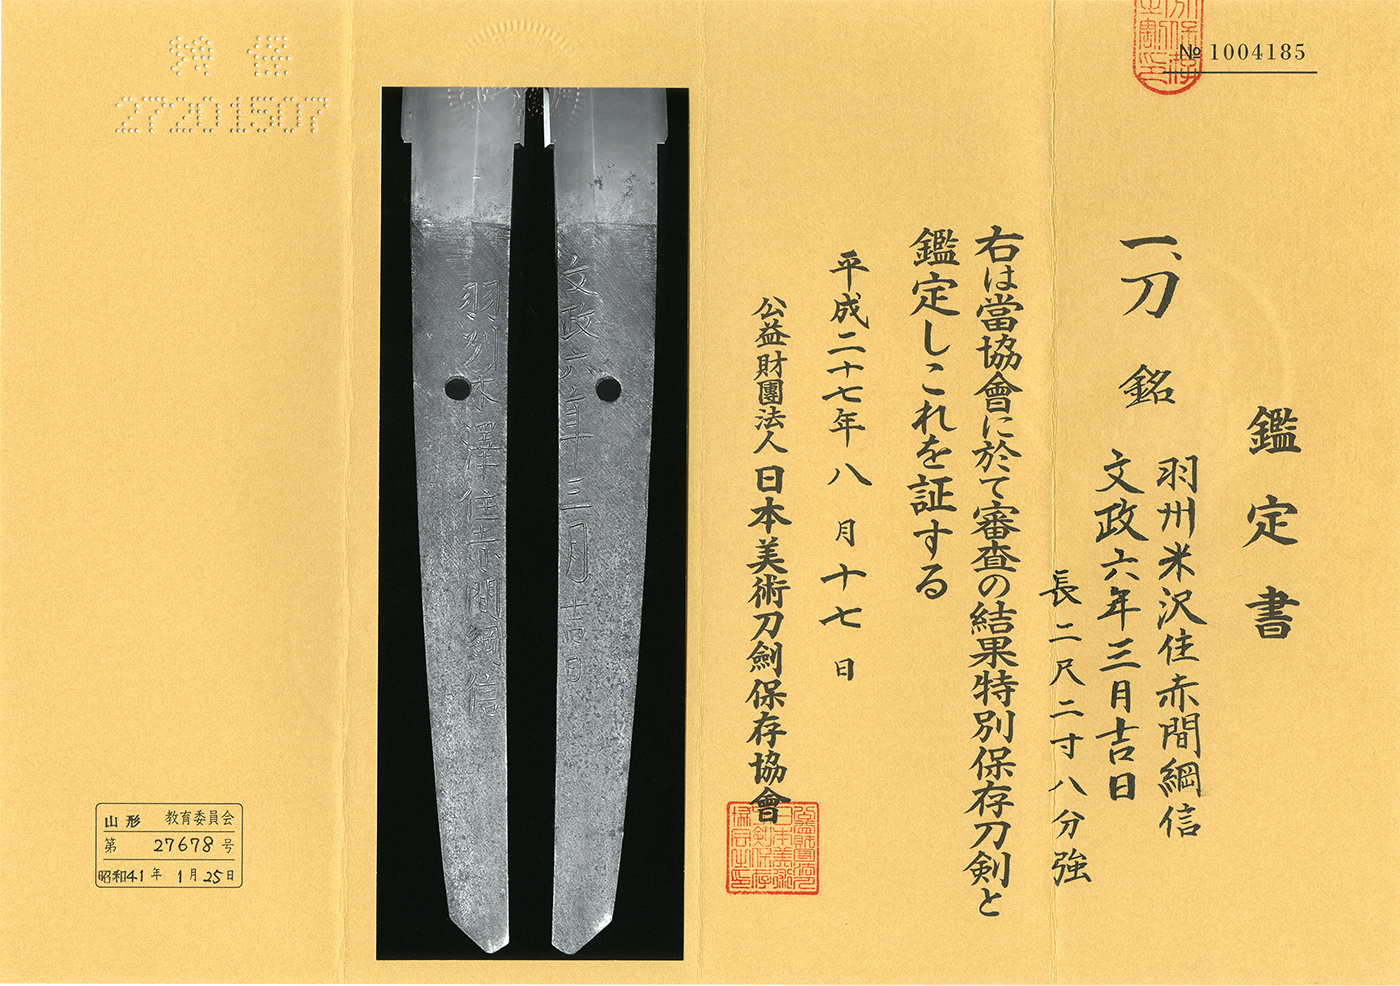 № 1004185
鑑定書
一、刀 銘 羽州米沢住赤間綱信
文政六年三月吉日
長二尺二寸八分強
右は當協會に於て審査の結果特別保存刀剣と
鑑定しこれを証する
平成二十七年八月十七日
公益財團法人日本美術刀劍保存協會
文政六年三月吉日
羽州米澤住赤間綱信
特保
27201507
山形 教育委員会
第 27678 号
昭和41年 1月25日